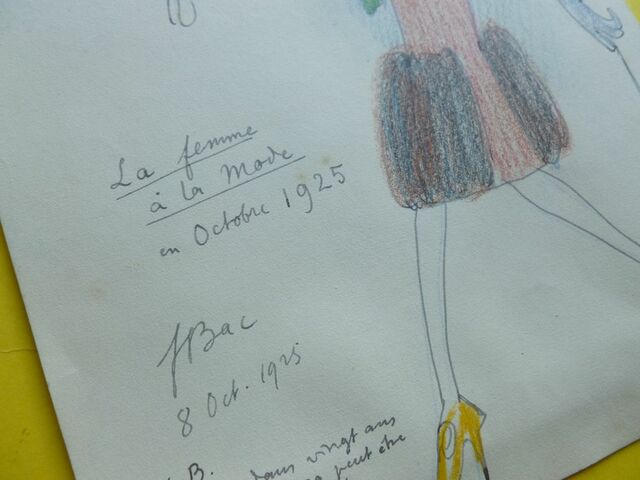 La femme
à la mode
en Octobre 1925
FBac
8 Oct. 1925
B.
dans vingt ans
peut être